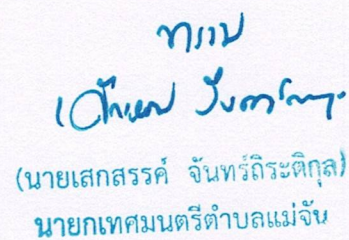 ทราบ
(นายเสกสรรค์ จันทร์ถิระติกุล)
นายกเทศมนตรีตำบลแม่จัน